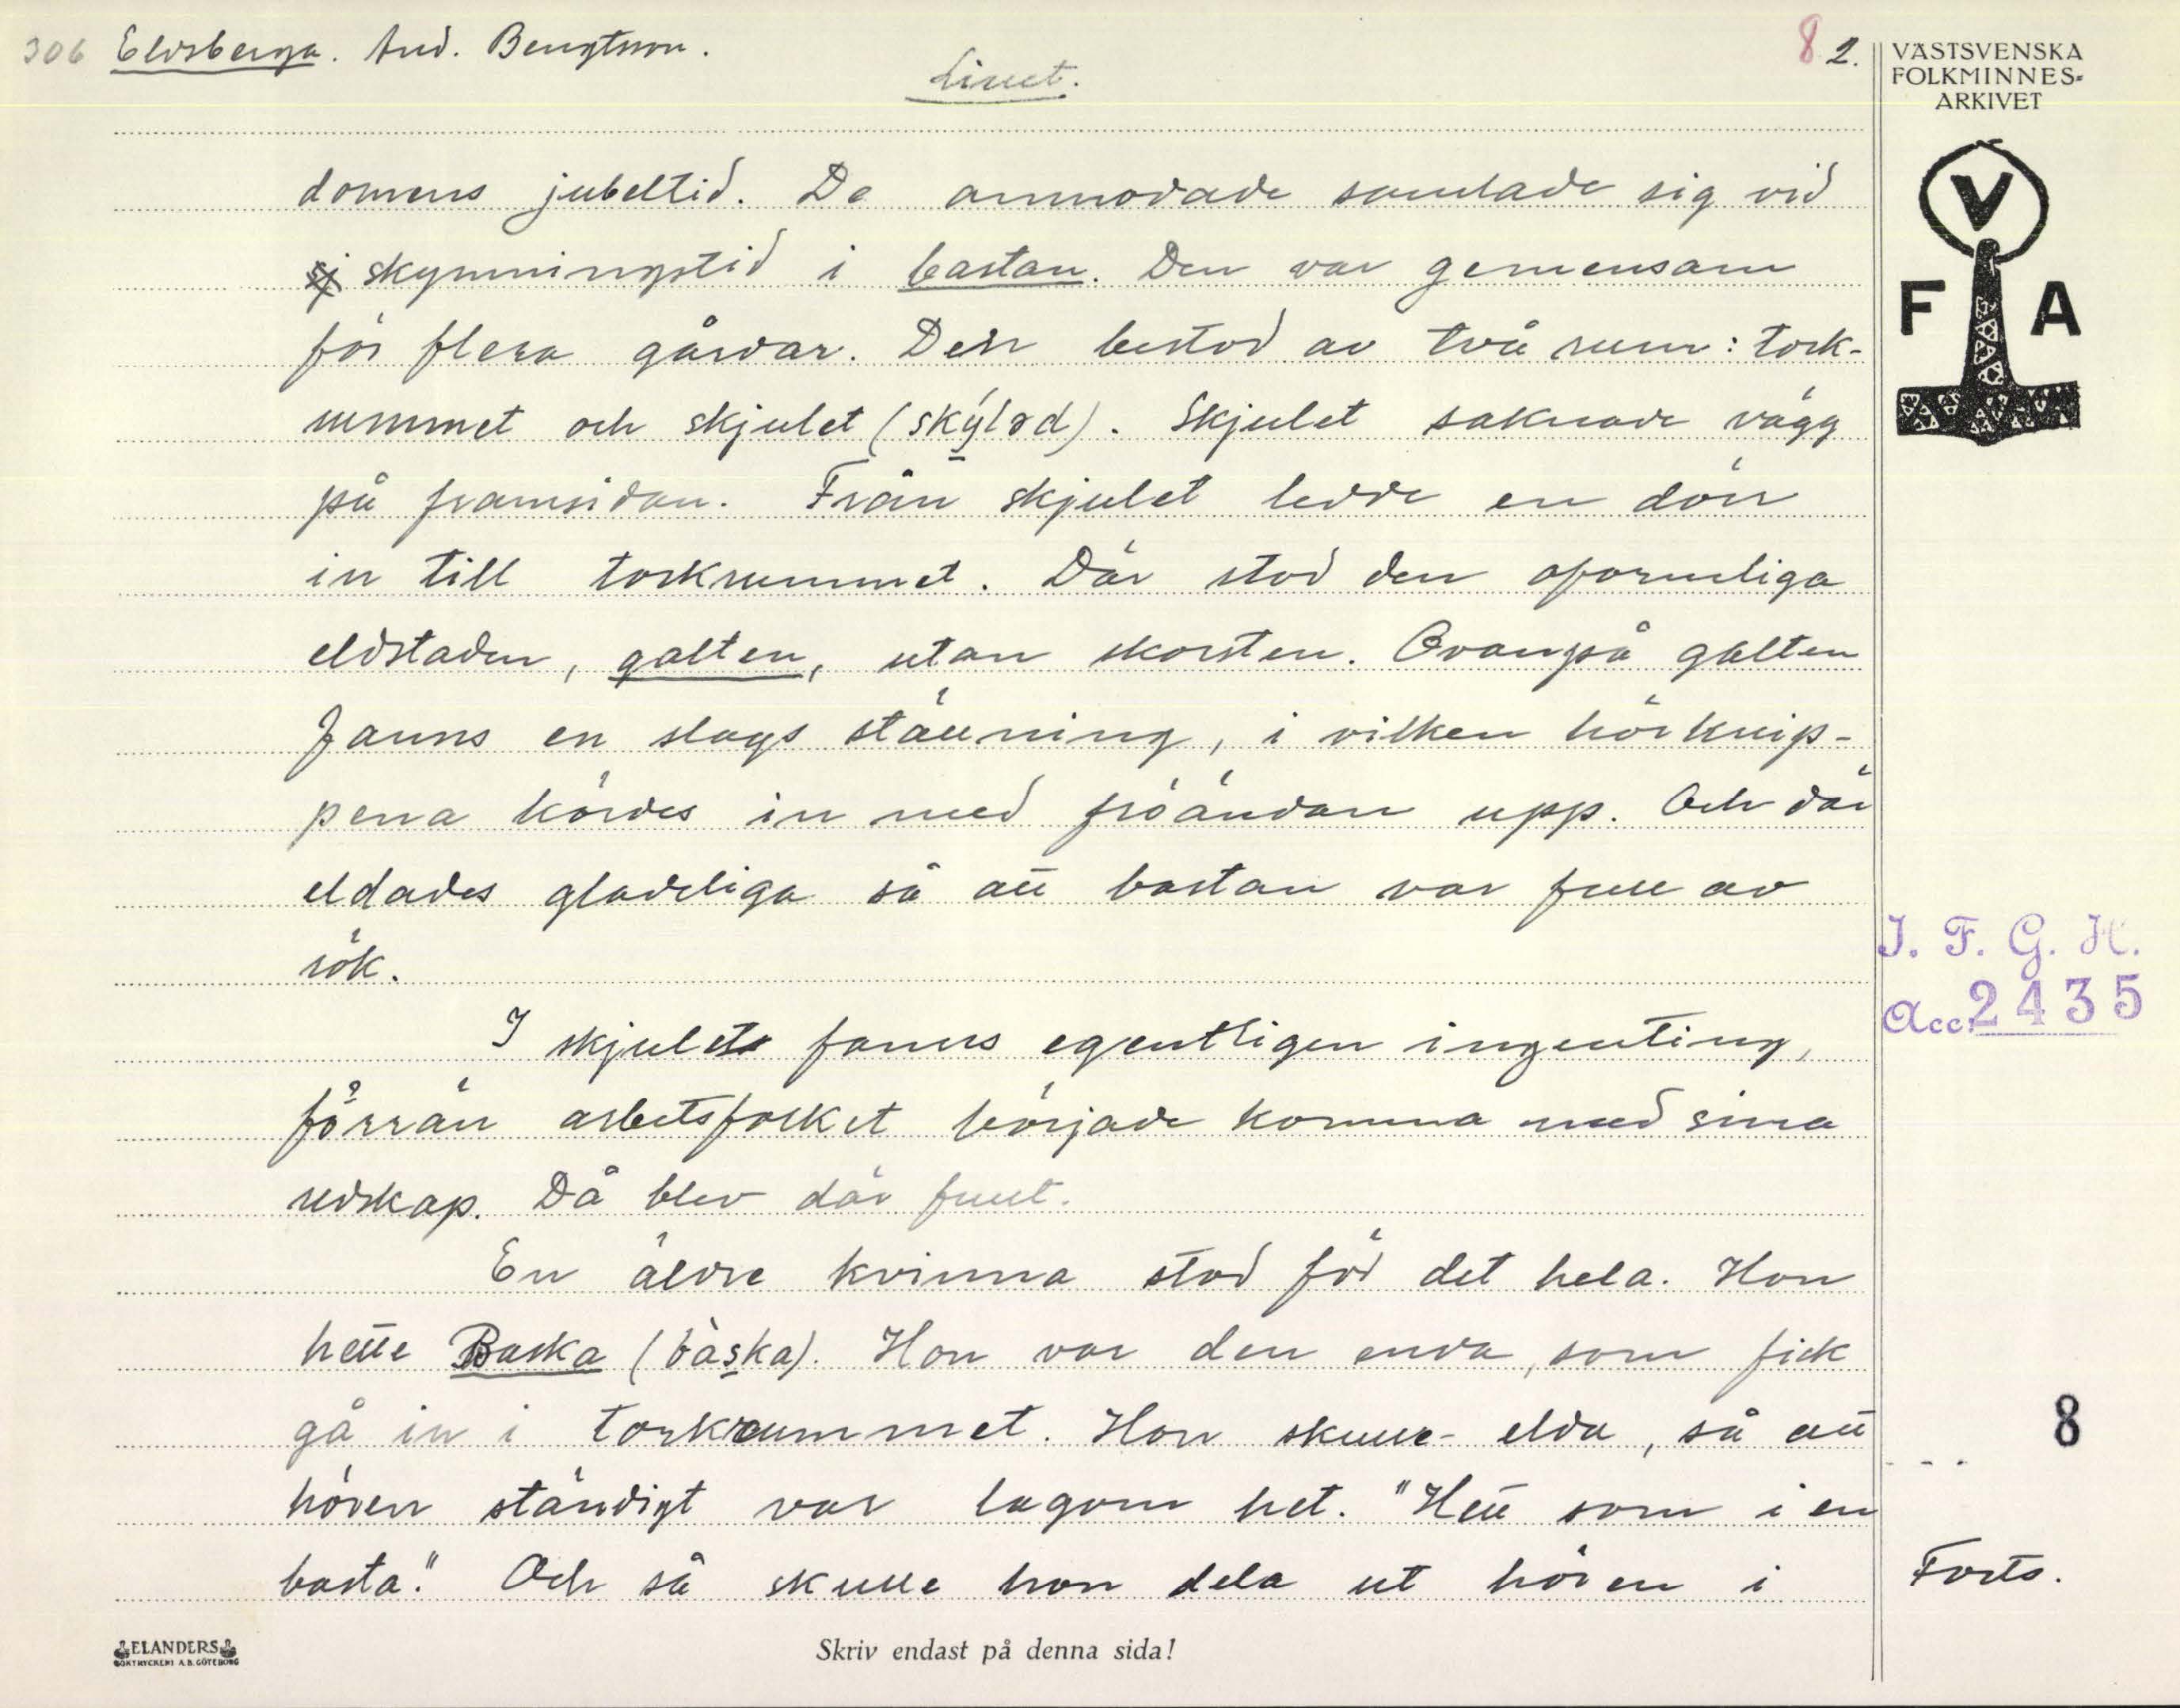 306 Eldsberga. And. Bengtsson. 8 2.
Linet.
VÄSTSVENSKA
FOLKMINNES-
ARKIVET
V
F A
domens jubeltid. De anmodade samlade sig vid
skymningstid i bastan. Den var gemensam
för flera gårdar. Den bestod av två rum: tork-
rummet och skjulet (skýləd). Skjulet saknade vägg
på framsidan. Från skjulet ledde en dörr
in till torkrummet. Där stod den oformliga
eldstaden, galten, utan skorsten. Ovanpå galten
fanns en slags ställning, i vilken hörknip-
pena kördes in med fröändan upp. Och där
eldades gladeliga så att bastan var full av
rök.
I. F. G. H.
Acc. 2435
I skjulet fanns egentligen ingenting,
förrän arbetsfolket började komma med sina
redskap. Då blev där fullt.
En äldre kvinna stod för det hela. Hon
hette Baska (bàska). Hon var den enda, som fick
gå in i torkrummet. Hon skulle elda, så att
8
hören ständigt var lagom het. "Hett som i en
basta". Och så skulle hon dela ut hören i
Forts.
ELANDERS
BOKTRYCKERI A.B. GÖTEBORG
Skriv endast på denna sida!